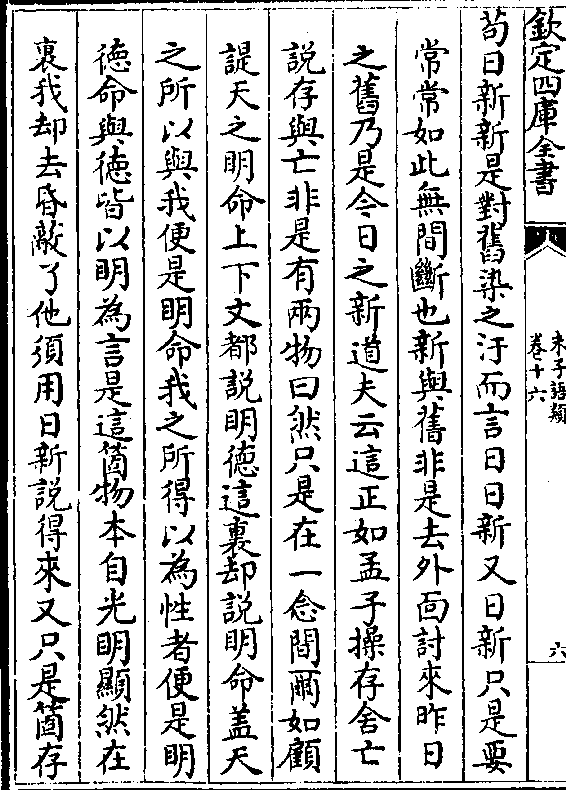 欽定四庫全書
朱子語類
卷十六
六
苟日新新是對舊染之汙而言日日新又日新只是要
常常如此無間斷也新與舊非是去外面討來昨日
之舊乃是今日之新道夫云這正如孟子操存舍亡
說存與亡非是有兩物曰然只是在一念間爾如顧
諟天之明命上下文都說明德這裏却說明命盖天
之所以與我便是明命我之所得以為性者便是明
德命與德皆以明為言是這箇物本自光明顯然在
裏我却去昏蔽了他須用日新說得來又只是箇存